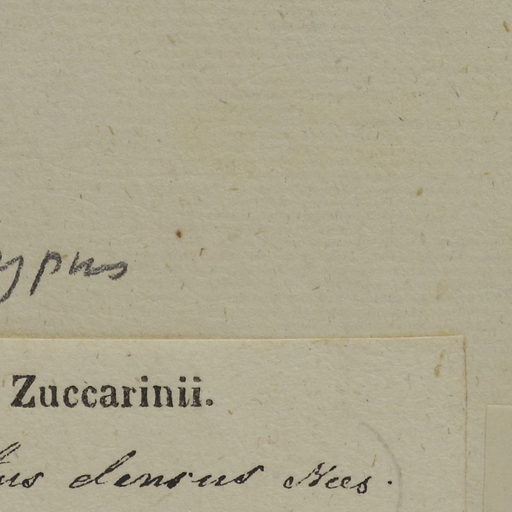 ypus
Zuccarinii.
us densus Nees.